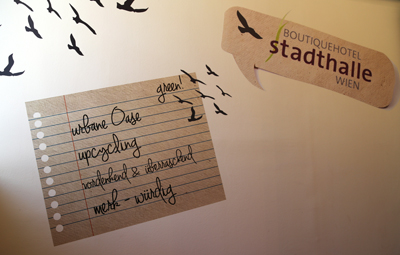 BOUTIQUEHOTEL
stadthalle
WIEN
green!
urbane Oase
upcycling
vordenkend & überraschend
merk - würdig